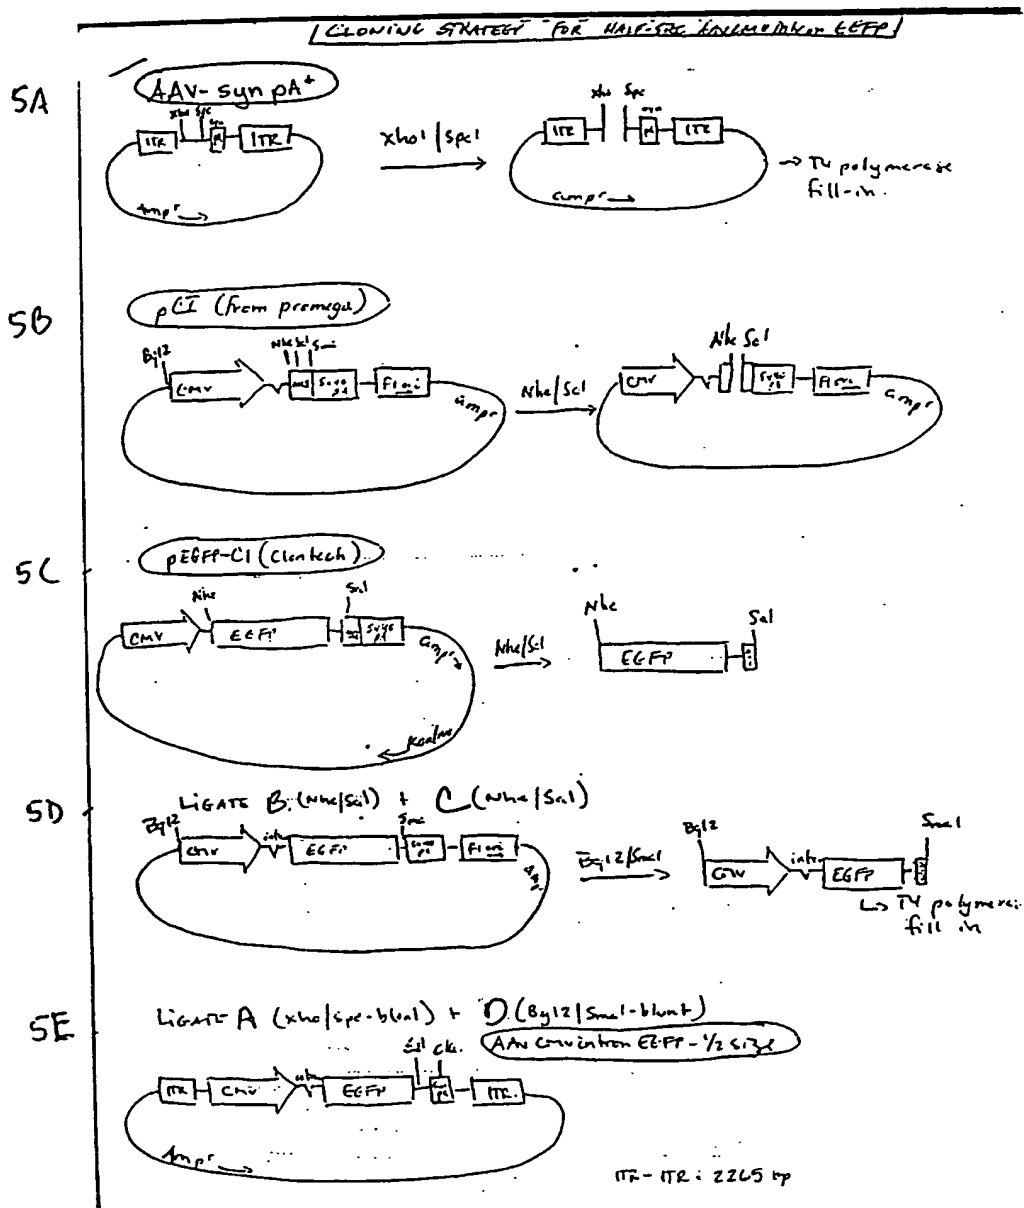 CLONING STRATEGY FOR HALF-SIZE EGFP
5A
AAV-syn pA+
Xho Spe
ITR pA ITR
Ampr
Xho1/Spe1
Xho Spe
ITR pA ITR
ampr
→ T4 polymerase
fill-in.
5B
pCI (from promega)
Bgl2
Nhe Sal Sma
CMV MCS SV40 pA F1 ori
ampr
Nhe/Sal
Nhe Sal
CMV SV40 pA F1 ori
ampr
5C
pEGFP-C1 (Clontech)
Nhe Sal
CMV EGFP SV40 pA
ampr
Kan/neo
Nhe/Sal
Nhe Sal
EGFP
5D
LIGATE B. (Nhe/Sal) + C (Nhe/Sal)
Bgl2 Sma
CMV intr EGFP SV40 pA F1 ori
Amp
Bgl2/Sma1
Bgl2 Sma1
CMV intr EGFP
↳ T4 polymerase
fill in
5E
LIGATE A (Xho/Spe-blunt) + D. (Bgl2/Sma1-blunt)
AAV CMV intron EGFP - 1/2 size
Sal Cla
ITR CMV intr EGFP pA ITR
Ampr
ITR-ITR: 2265 bp